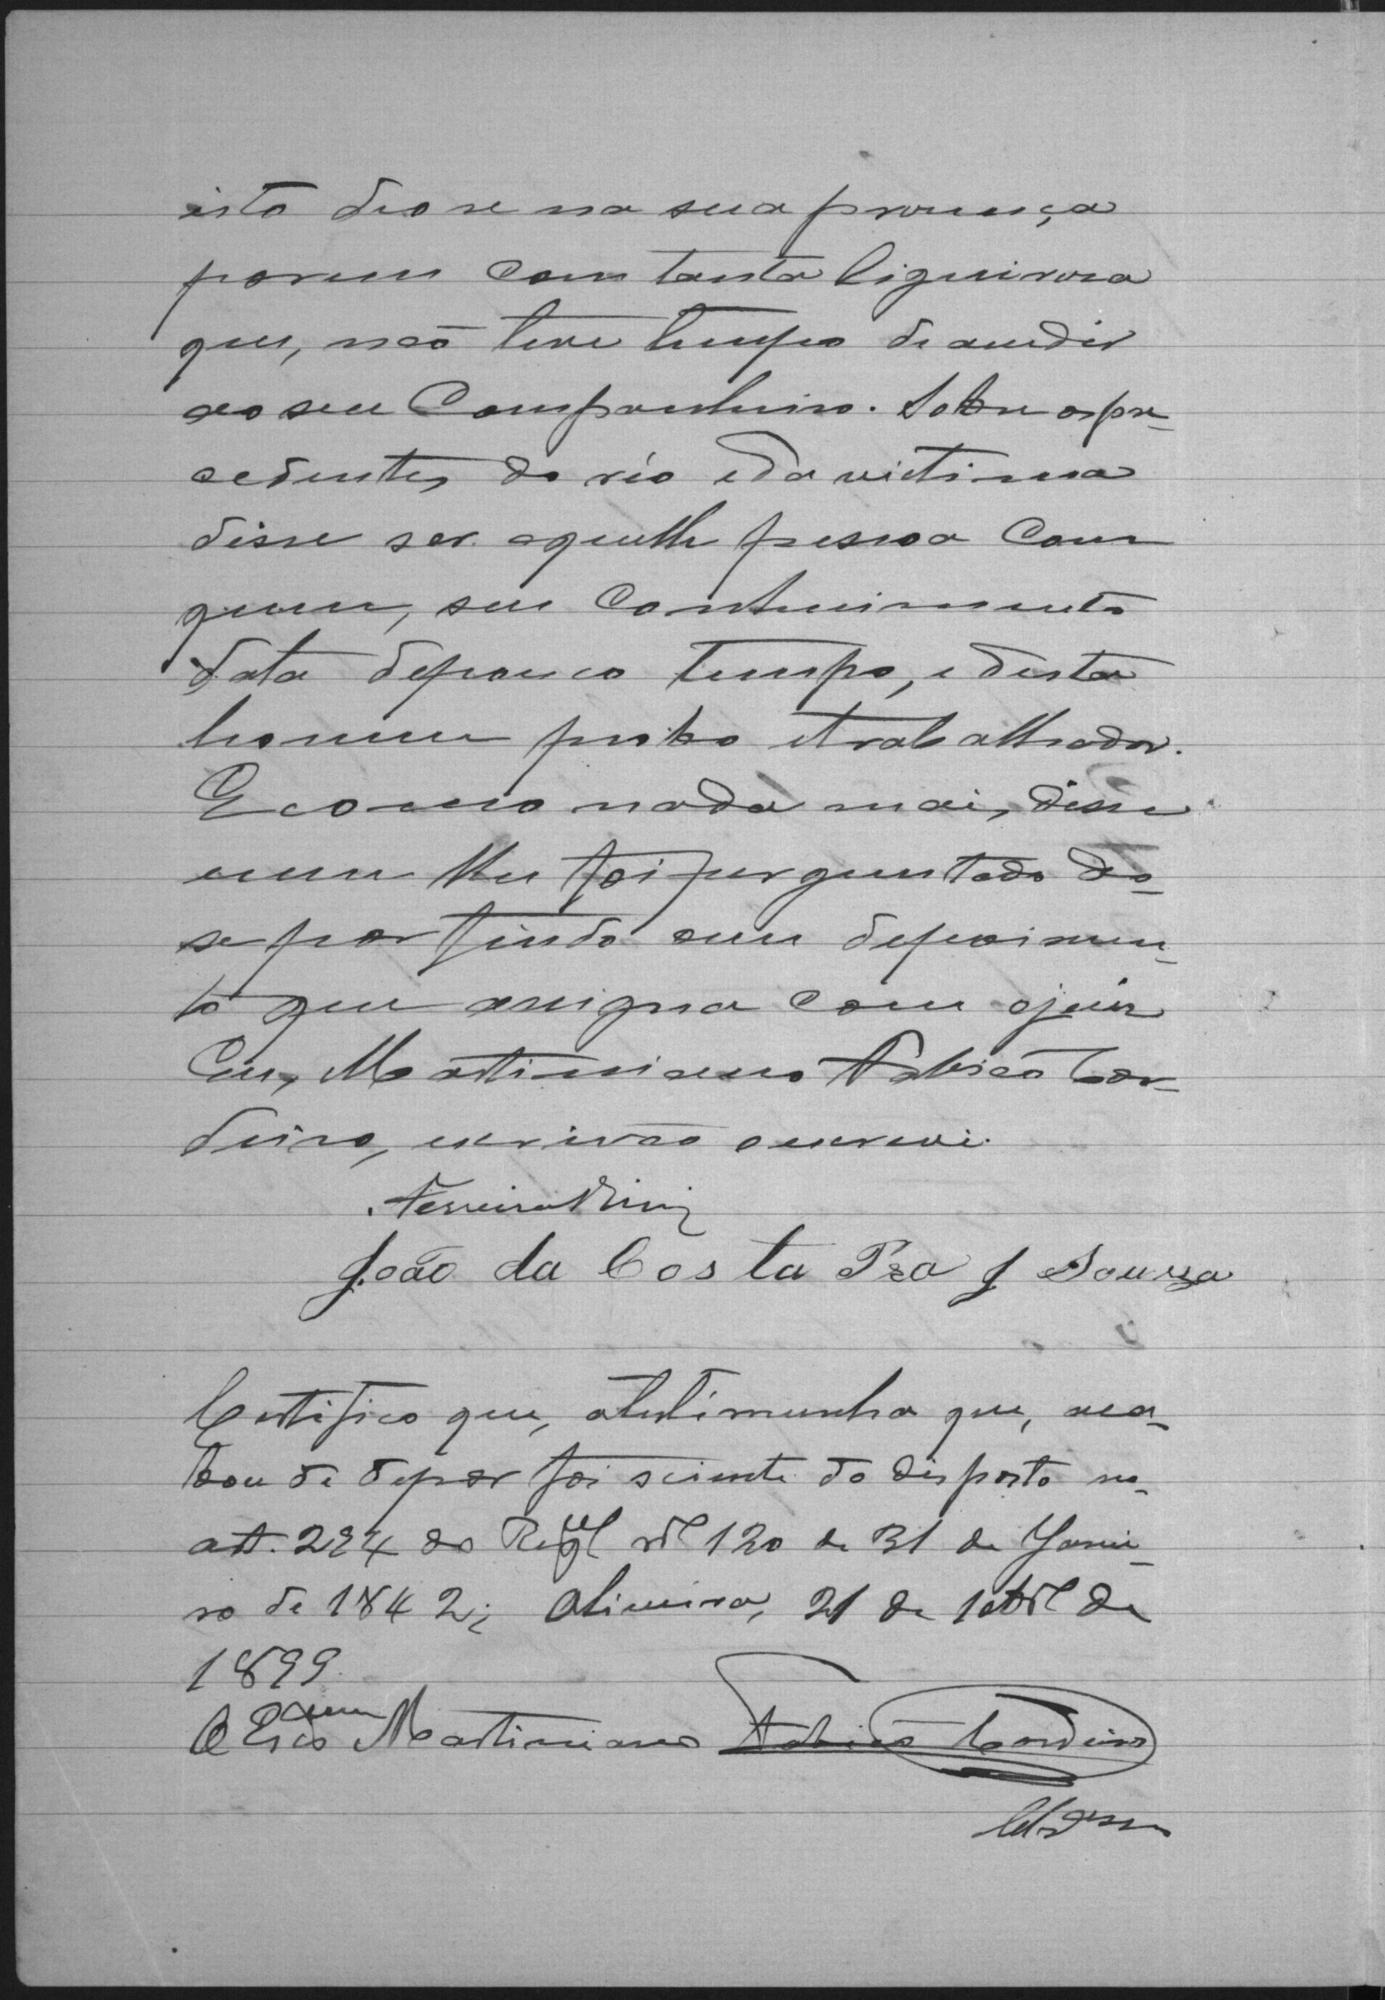 isto deo se na sua prezença
porem com tanta ligeireza
que, não teve tempo de acudir
ao seu Companheiro. Sobre os pre-
cedentes do réo e da victima
disse ser aquelle pessoa com
quem, seu conhecimento
data de pouco tempo, e desta
homem probo e trabalhador.
E como nada mais disse
nem lhe foi perguntado do-
se por findo seu depoimen-
to que assigna com o juiz
Eu, Martiniano Fabião Cor-
deiro, escrivão o escrevi.
Ferreira Diniz
João da Costa Souza
Certifico que, a testimunha que, aca-
bou de depor foi sciente do disposto no
art. 294 do Regul nº 120 de 31 de Janei-
ro de 1842; 21 de Abril de
1899.
O Escram Martiniano Fabião Cordeiro